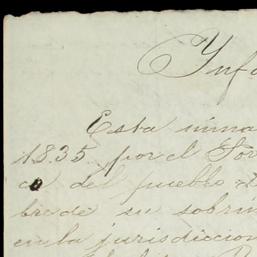 Info
Esta mina
1835 por el Sor
co del pueblo
bre de su sobrin
en la jurisdiccion